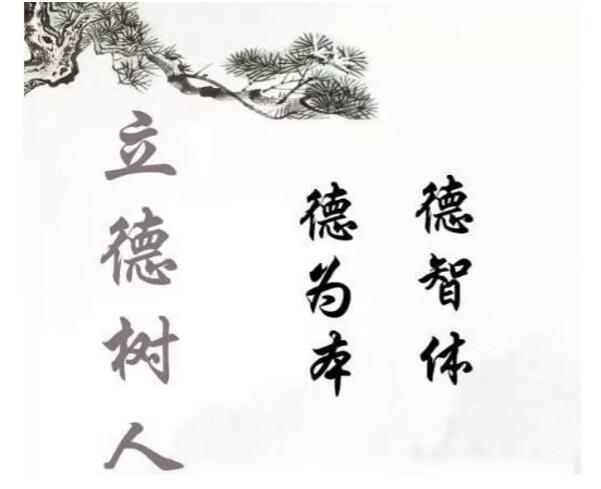 德智体
德为本
立德树人